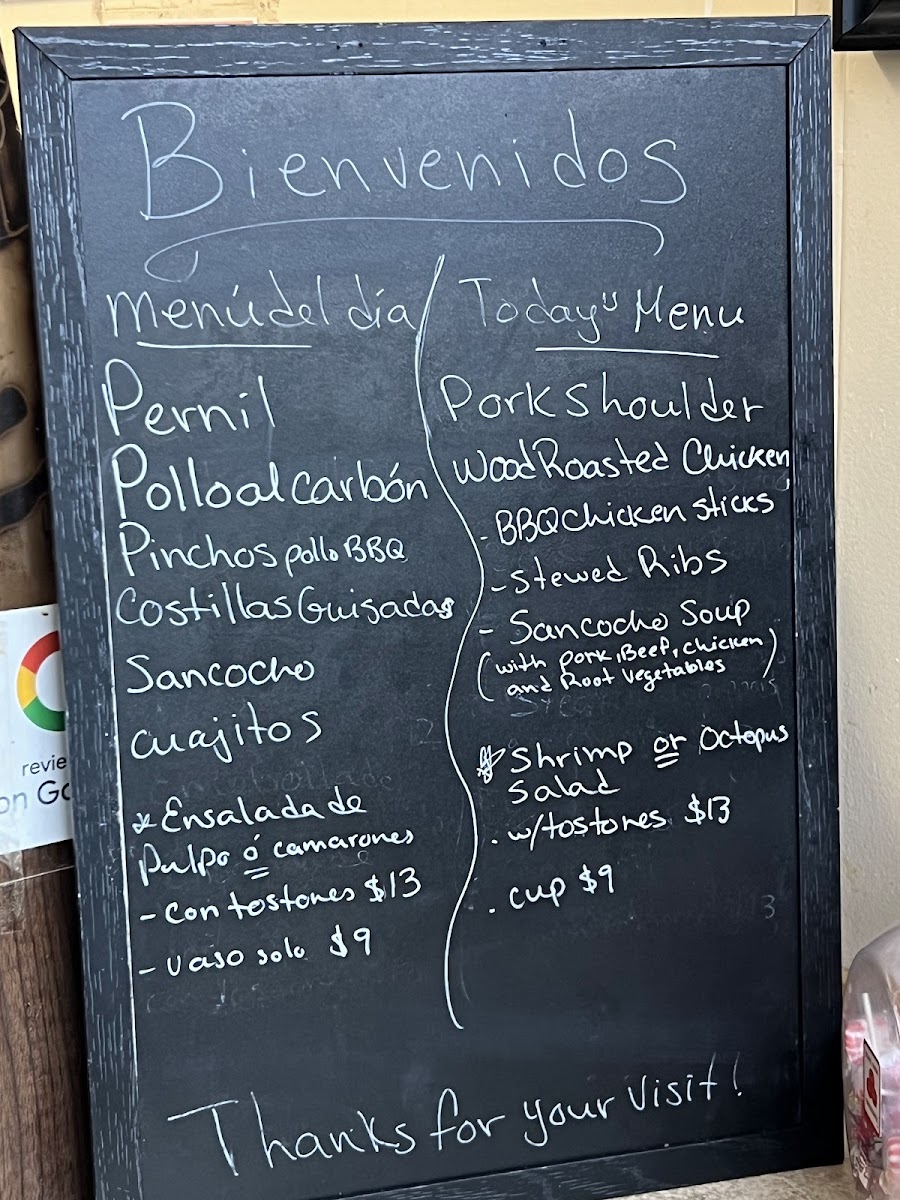 Bienvenidos
Menú del día
Pernil
Pollo al Carbón
Pinchos pollo BBQ
Costillas Guisadas
Sancocho
Cuajitos
*Ensalada de
Pulpo ó camarones
- Con tostones $13
- Vaso solo $9
Today's Menu
Pork Shoulder
Wood Roasted Chicken
- BBQ Chicken Sticks
- Stewed Ribs
- Sancocho Soup
(with pork, Beef, chicken
and Root Vegetables)
* Shrimp or Octopus
Salad
. w/tostones $13
. cup $9
Thanks for your Visit!
revie
on Go